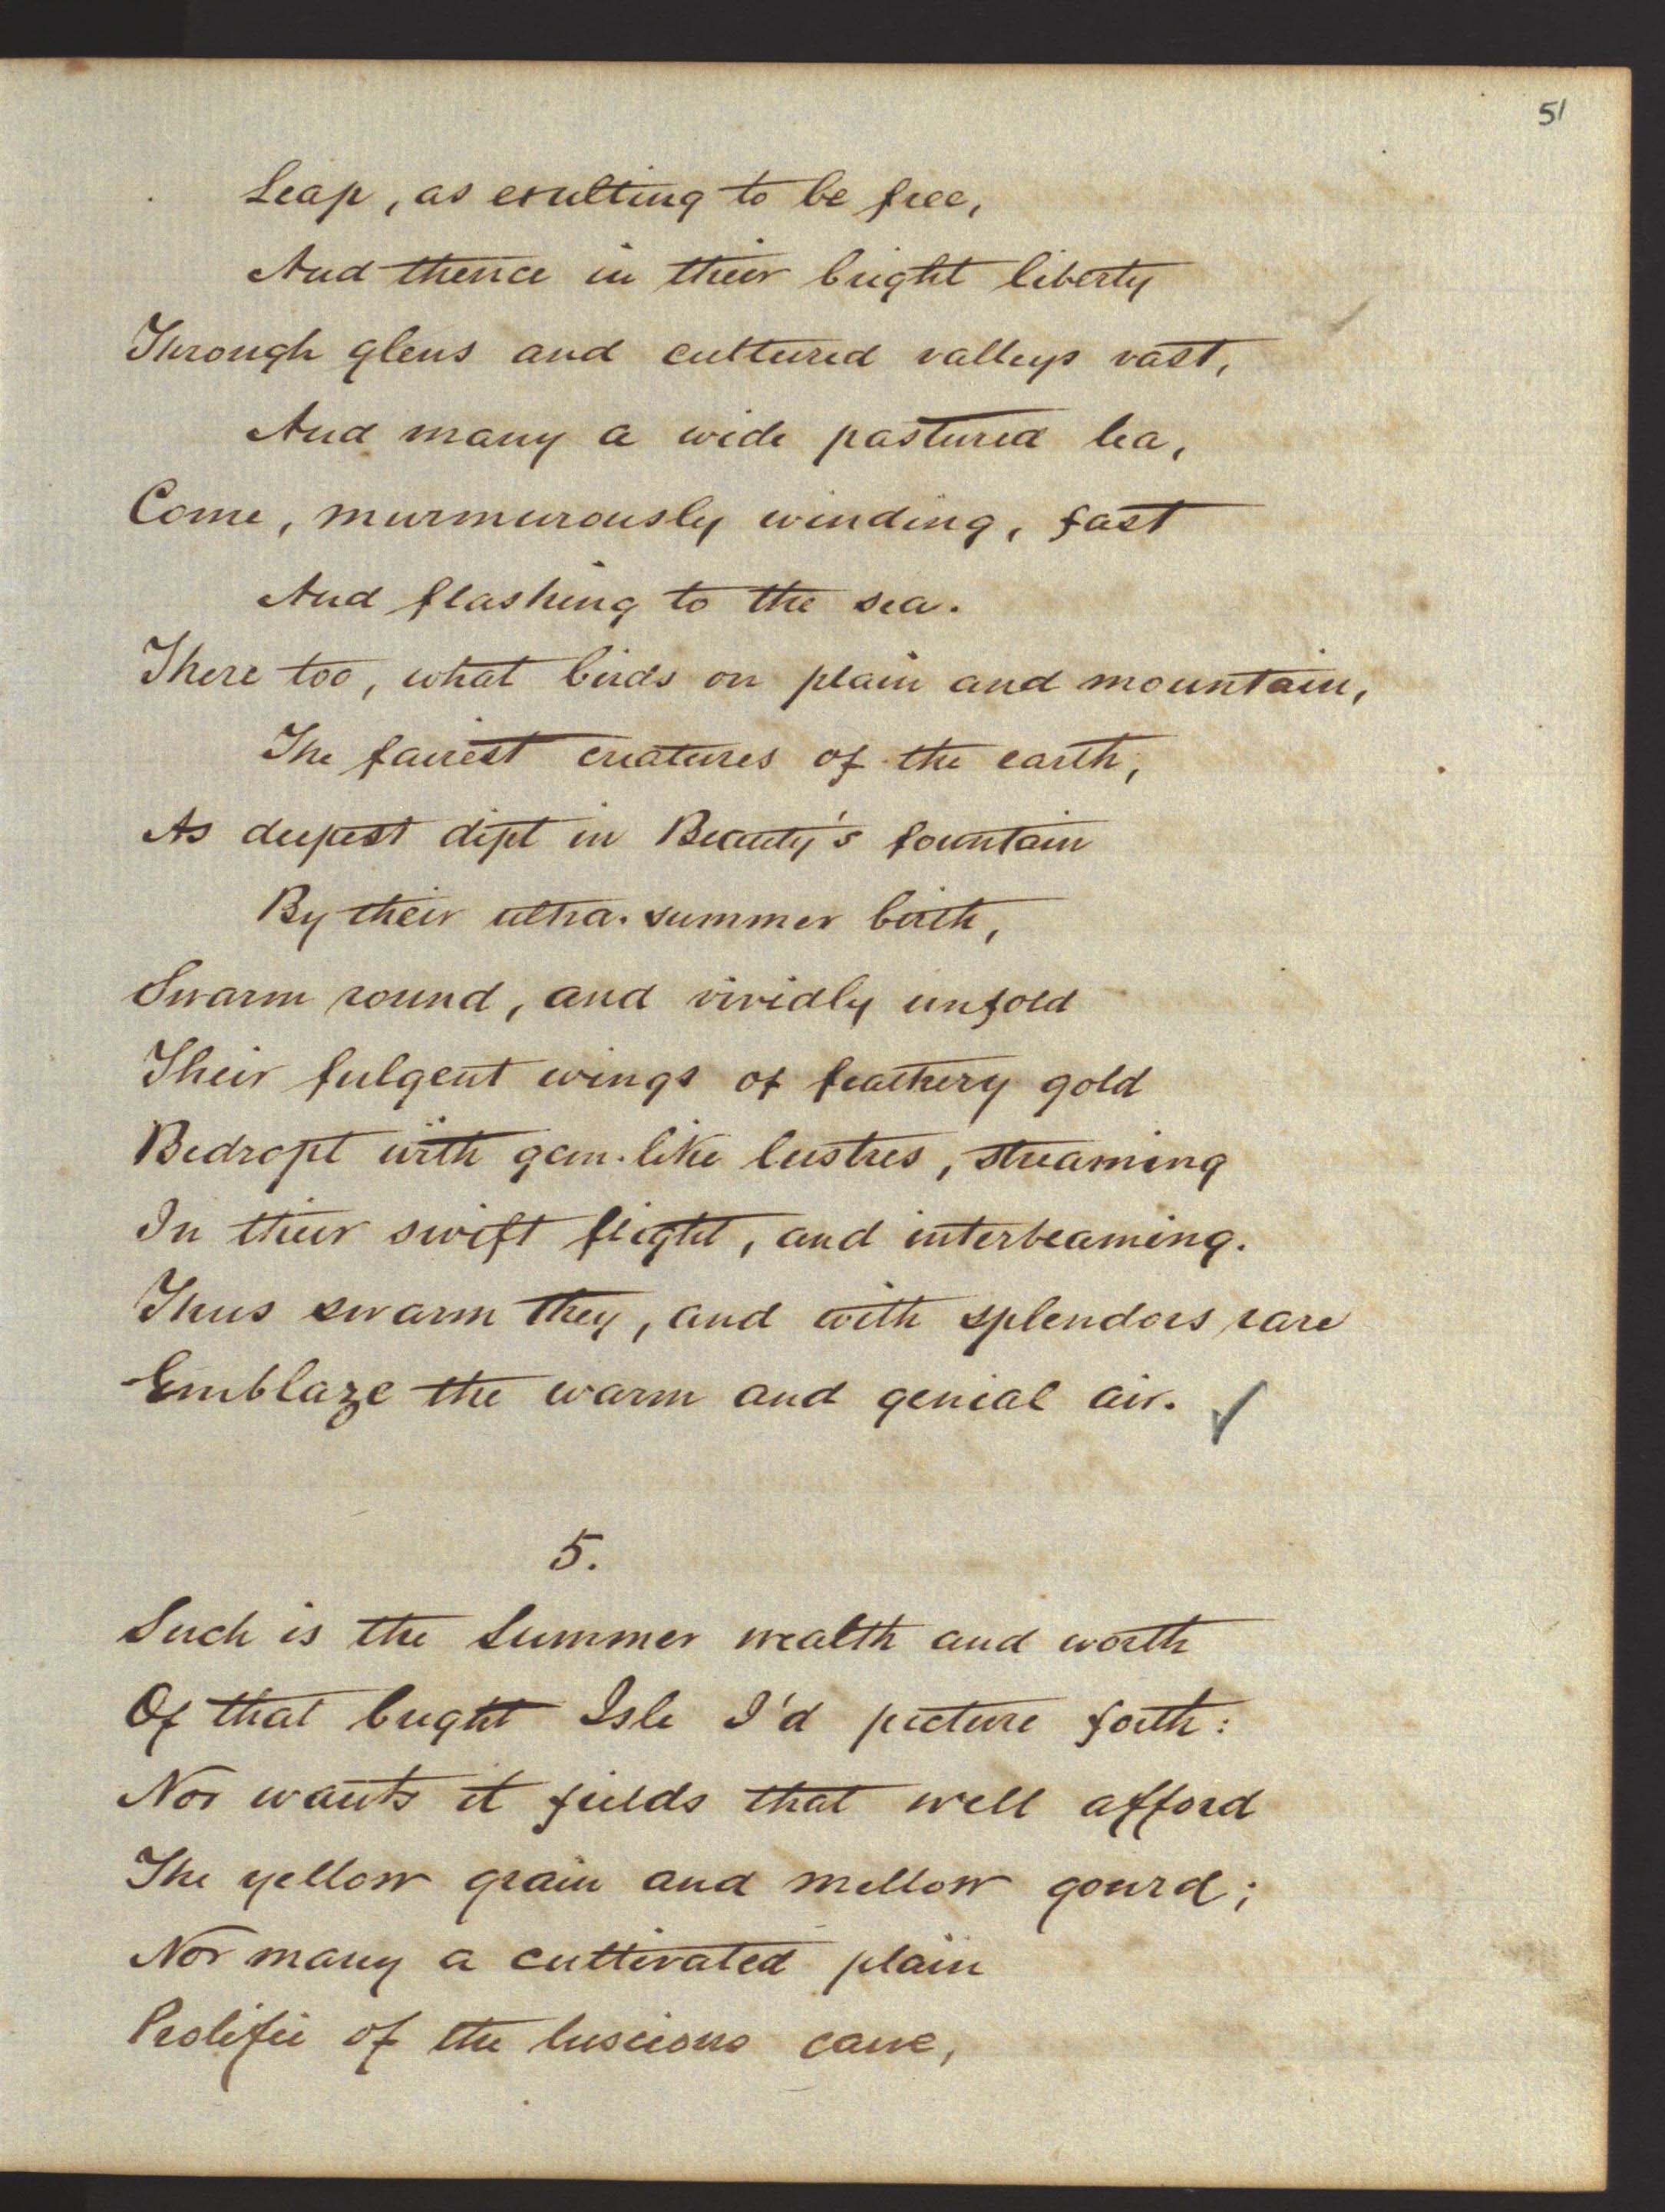 51
Leap, as exulting to be free,
And thence in their bright liberty
Through glens and cultured valleys vast,
And many a wide pastured lea,
Come, murmurously winding, fast
And flashing to the sea.
There too, what birds on plain and mountain,
The fairest creatures of the earth,
As deepest dipt in Beauty's fountain
By their ultra-summer birth,
Swarm round, and vividly unfold
Their fulgent wings of feathery gold
Bedropt with gem-like lustres, streaming
In their swift flight, and interbeaming.
Thus swarm they, and with splendors rare
Emblaze the warm and genial air. ✓
5.
Such is the Summer wealth and worth
Of that bright Isle I'd picture forth:
Nor wants it fields that well afford
The yellow grain and mellow gourd;
Nor many a cultivated plain
Prolific of the luscious cane,